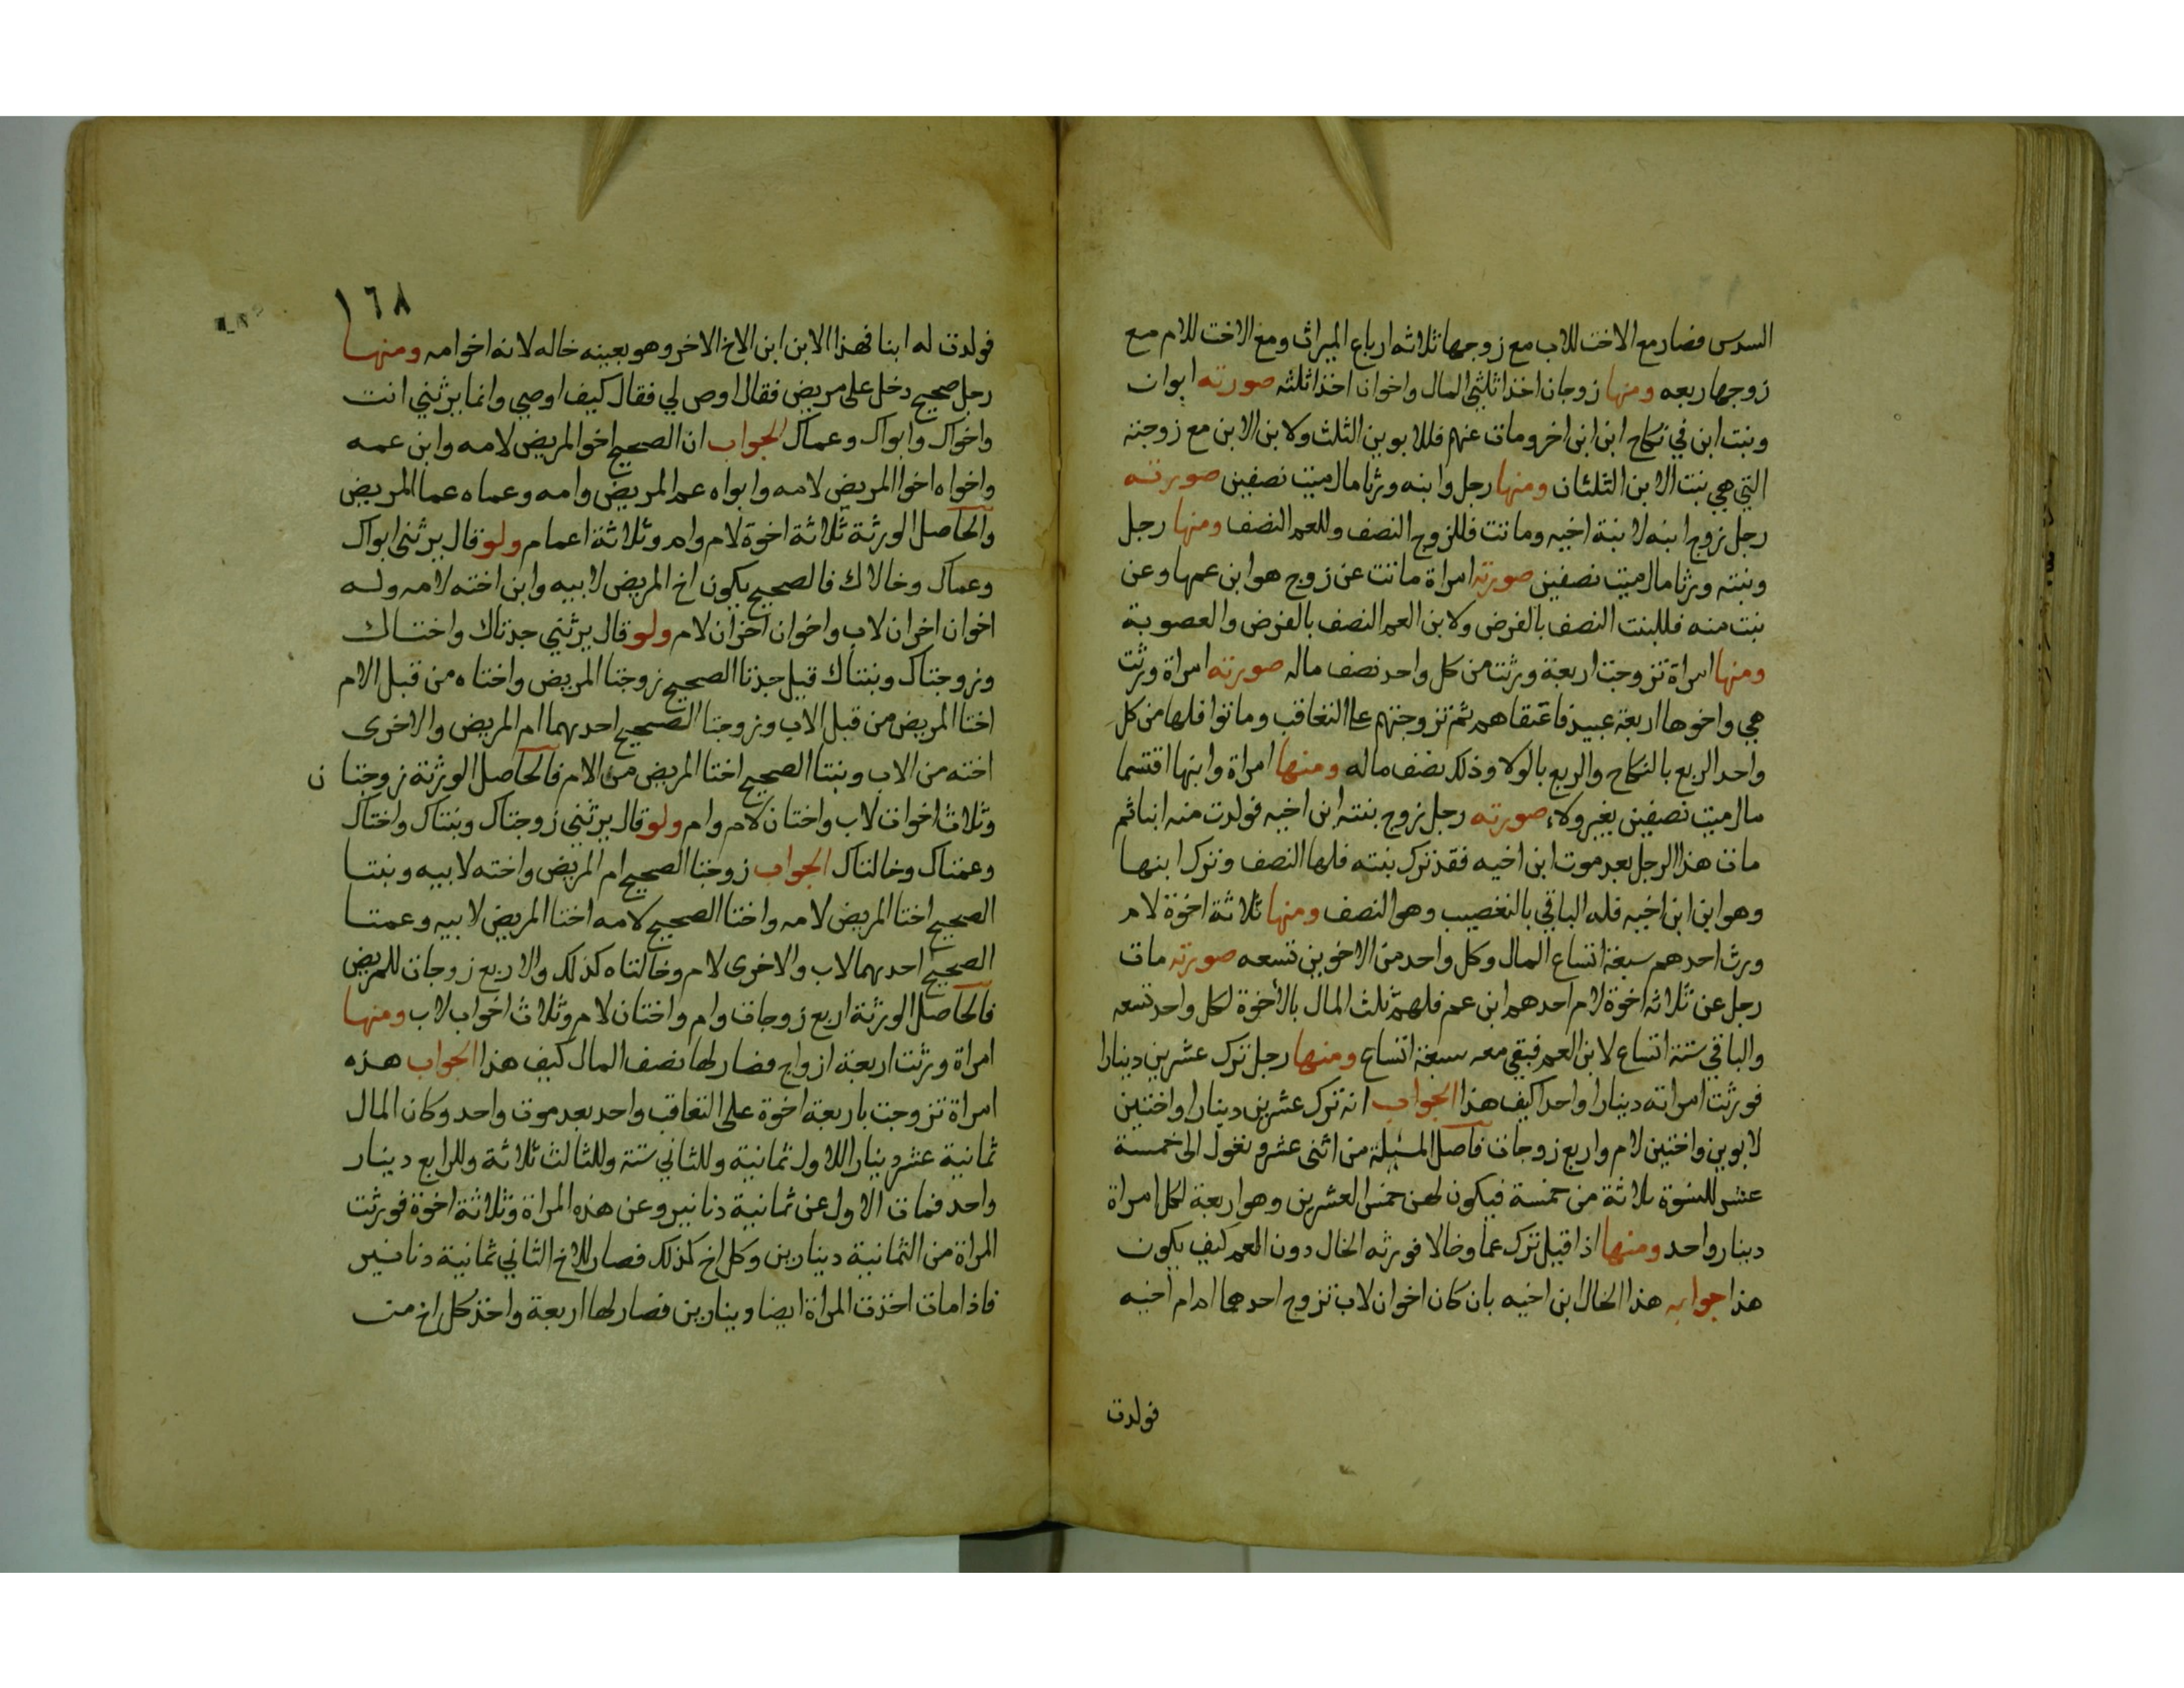 السدس فصار مع الاخت للاب مع زوجها ثلاثه ارباع الميراث ومع الاخت للام مع
زوجها ربعه ومنها زوجان اخذا ثلثي المال واخوان اخذا ثلثه صورته ابوان
وبنت ابن في نكاح ابن ابن اخر ومات عنهم فللابوين الثلث ولابن الابن مع زوجته
التي هي بنت الابن الثلثان ومنها رجل وابنه ورثا مال ميت نصفين صورته
رجل زوج ابنه لابنة اخيه وماتت فللزوج النصف وللعم النصف ومنها رجل
وبنته ورثا مال ميت نصفين صورته امراة ماتت عن زوج هو ابن عمها وعن
بنت منه فللبنت النصف بالفرض ولابن العم النصف بالفرض والعصوبة
ومنها امراة تزوجت اربعة ورثت من كل واحد نصف ماله صورته امراة ورثت
هي واخوها اربعة عبيد فاعتقاهم ثم تزوجتهم علي التعاقب وماتوا فلها من كل
واحد الربع بالنكاح والربع بالولا وذلك نصف ماله ومنها امراة وابنها اقتسما
مال ميت نصفين بغير ولاء صورته رجل زوج بنته ابن اخيه فولدت منه ابنا ثم
مات هذا الرجل بعد موت ابن اخيه فقد ترك بنته فلها النصف وترك ابنها
وهو ابن ابن اخيه فله الباقي بالتعصيب وهو النصف ومنها ثلاثة اخوة لام
ورث احدهم سبعة اتساع المال وكل واحد من الاخوين تسعه صورته مات
رجل عن ثلاثه اخوة لام احدهم ابن عم فلهم ثلث المال بالاخوة لكل واحد تسعه
والباقي ستة اتساع لابن العم فبقي معه سبعة اتساع ومنها رجل ترك عشرين دينارا
فورثت امراته دينارا واحدا كيف هذا الجواب انه ترك عشرين دينارا واختين
لابوين واختين لام واربع زوجات فاصل المسئلة من اثنى عشر وتعول الى خمسة
عشر للنسوة ثلاثة من خمسة فيكون لهن خمس العشرين وهو اربعة لكل امراة
دينار واحد ومنها اذا قيل ترك عما وخالا فورثه الخال دون العم كيف يكون
هذا جوابه هذا الخال ابن اخيه بان كان اخوان لاب تزوج احدهما ام ام اخيه
فولدت
١٦٨
فولدت له ابنا فهذا الابن ابن الاخ الاخر وهو بعينه خاله لانه اخو امه ومنها
رجل صحيح دخل على مريض فقال اوص لي فقال كيف اوصي وانما يرثني انت
واخواك وابواك وعماك الجواب ان الصحيح اخو المريض لامه وابن عمه
واخواه اخوا المريض لامه وابواه عم المريض وامه وعماه عما المريض
والحاصل الورثة ثلاثة اخوة لام وام وثلاثة اعمام ولو قال يرثني ابواك
وعماك وخالاك فالصحيح يكون اخ المريض لابيه وابن اخته لامه وله
اخوان اخران لاب واخوان اخران لام ولو قال يرثني جدتاك واختاك
وزوجتاك وبنتاك قيل جدتا الصحيح زوجتا المريض واختاه من قبل الام
اختا المريض من قبل الاب وزوجتا الصحيح احديهما ام المريض والاخرى
اخته من الاب وبنتا الصحيح اختا المريض من الام فالحاصل الورثة زوجتان
وثلاث اخوات لاب واختان لام وام ولو قال يرثني زوجتاك وبنتاك واختاك
وعمتاك وخالتاك الجواب زوجتا الصحيح ام المريض واخته لابيه وبنتا
الصحيح اختا المريض لامه واختا الصحيح لامه اختا المريض لابيه وعمتا
الصحيح احديهما لاب والاخرى لام وخالتاه كذلك والاربع زوجات للمريض
فالحاصل الورثة اربع زوجات وام واختان لام وثلاث اخوات لاب ومنها
امراة ورثت اربعة ازواج فصار لها نصف المال كيف هذا الجواب هذه
امراة تزوجت باربعة اخوة على التعاقب واحد بعد موت واحد وكان المال
ثمانية عشر دينارا للاول ثمانية وللثاني ستة وللثالث ثلاثة وللرابع دينار
واحد فمات الاول عن ثمانية دنانير وعن هذه المراة وثلاثة اخوة فورثت
المراة من الثمانية دينارين وكل اخ كذلك فصار للاخ الثاني ثمانية دنانير
فاذا مات اخذت المراة ايضا دينارين فصار لها اربعة واخذ كل اخ من